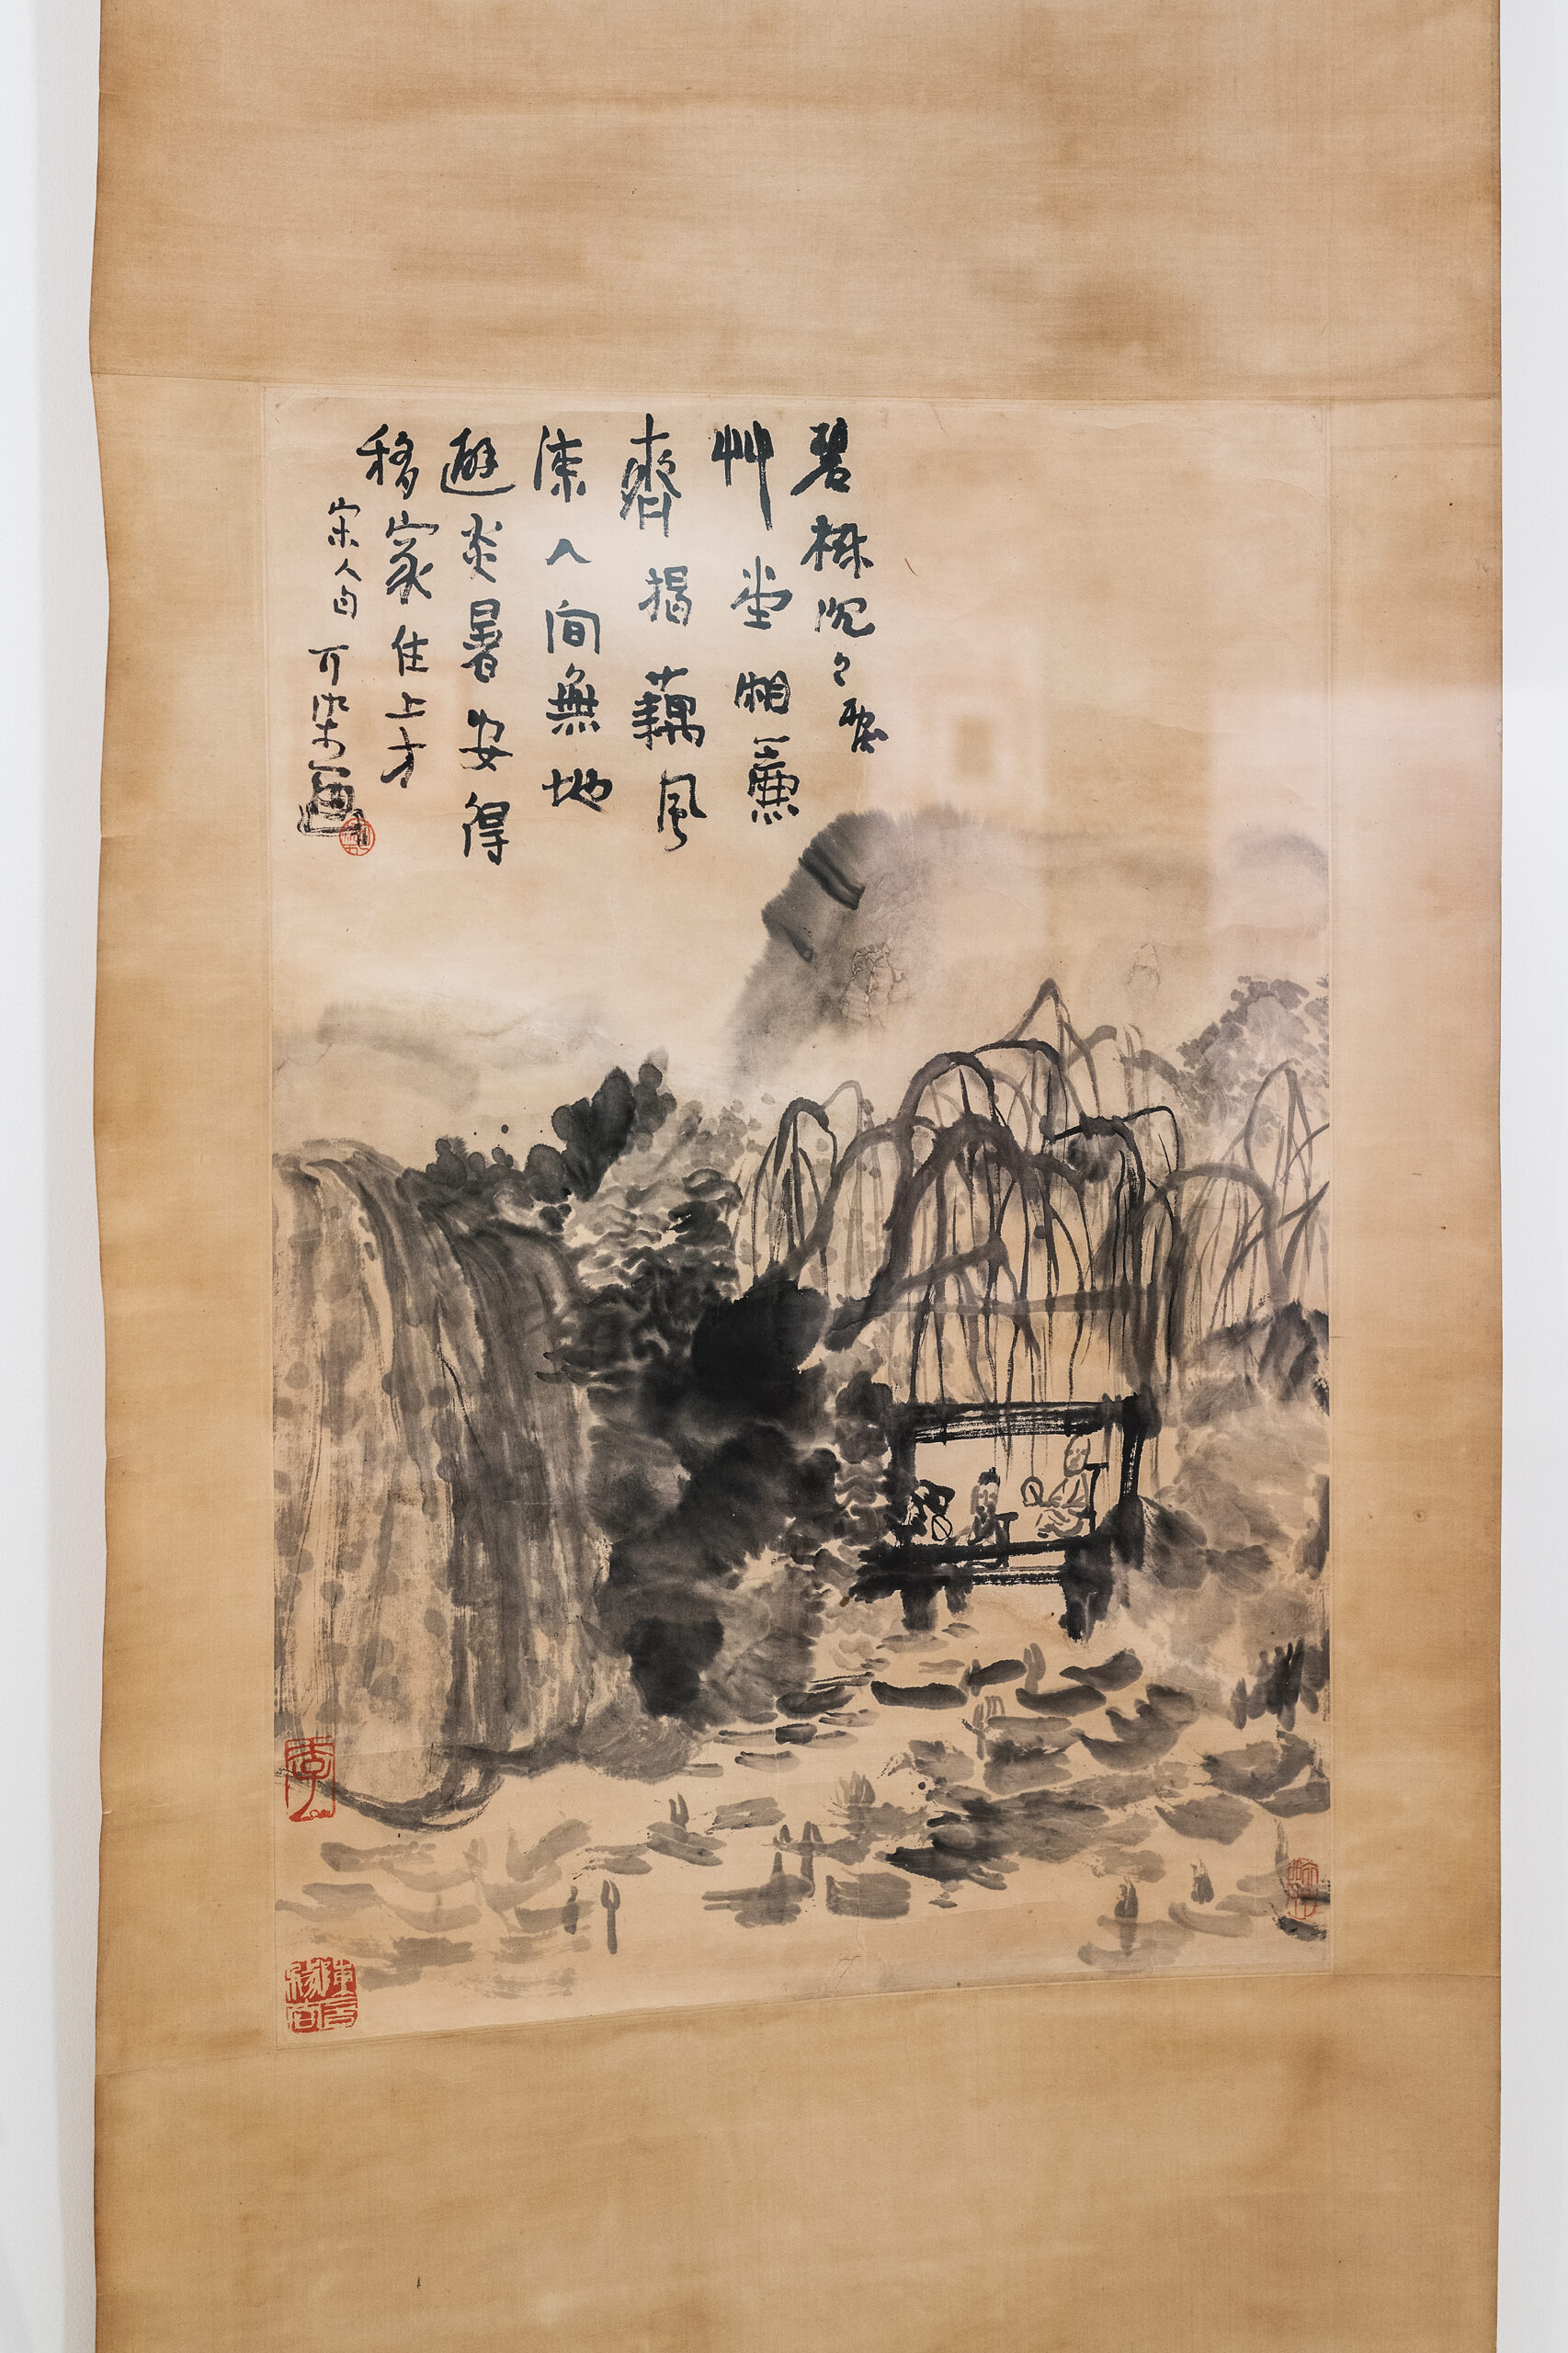 碧樹沉々覆
艸堂湘簾
齊揭藕風
涼人間無地
避炎暑安得
移家住上方
宋人句 可染畫
李